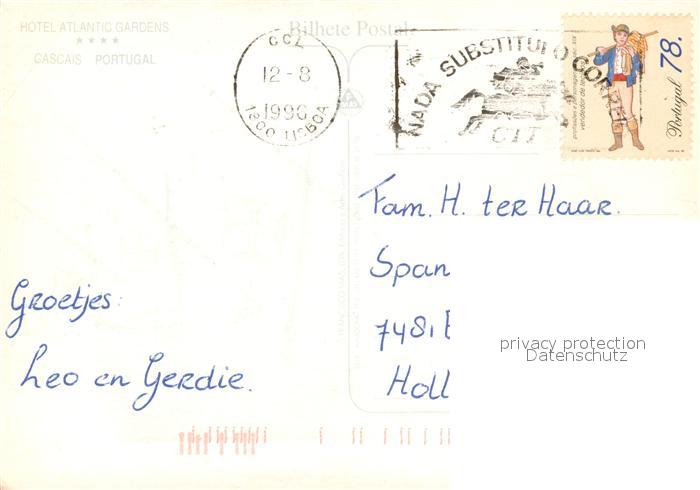 HOTEL ATLANTIC GARDENS
★ ★ ★ ★
CASCAIS PORTUGAL
Bilhete Postal
CCL
12-8
1996
1800 LISBOA
NADA SUBSTITUI O CORREIO
CTT
78.
Portugal
Fam. H. ter Haar.
Span
7481
Holl
Groetjes:
Leo en Gerdie.
privacy protection
Datenschutz